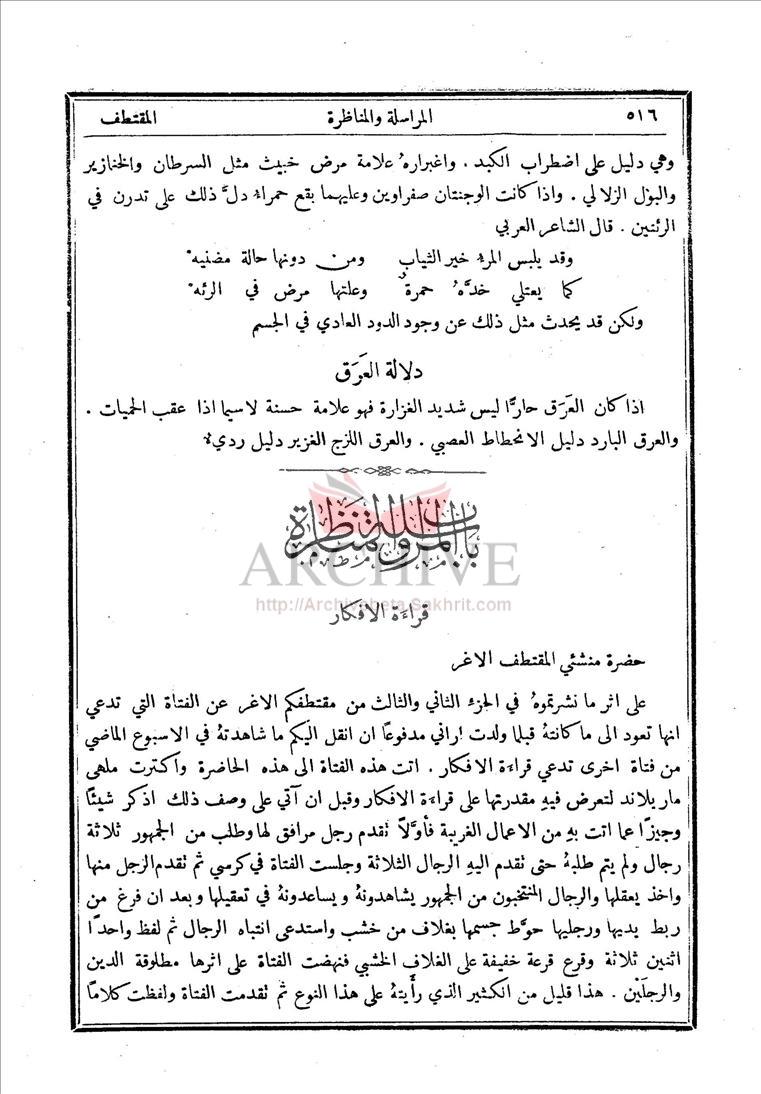 ٥١٦ المراسلة والمناظرة المقتطف
وهي دليل على اضطراب الكبد . واغبراره علامة مرض خبيث مثل السرطان والخنازير
والبول الزلالي . واذا كانت الوجنتان صفراوين وعليهما بقع حمراء دلَّ ذلك على تدرن في
الرئتين . قال الشاعر العربي
وقد يلبس المرء خير الثياب ومن دونها حالة مضنيه
كما يعتلي خدَّهُ حمرةٌ وعلتها مرض في الرئه
ولكن قد يحدث مثل ذلك عن وجود الدود العادي في الجسم
دلالة العَرَق
اذا كان العَرَق حارًّا ليس شديد الغزارة فهو علامة حسنة لاسيما اذا عقب الحميات .
والعرق البارد دليل الانحطاط العصبي . والعرق اللزج الغزير دليل رديء
باب المراسلة والمناظرة
ARCHIVE
http://Archivebeta.Sakhrit.com
قراءَة الافكار
حضرة منشئي المقتطف الاغر
على اثر ما نشرتموهُ في الجزء الثاني والثالث من مقتطفكم الاغر عن الفتاة التي تدعي
انها تعود الى ما كانتهُ قبلما ولدت اراني مدفوعًا ان انقل اليكم ما شاهدتهُ في الاسبوع الماضي
من فتاة اخرى تدعي قراءَة الافكار . اتت هذه الفتاة الى هذه الحاضرة واكترت ملهى
ماريلاند لتعرض فيهِ مقدرتها على قراءَة الافكار وقبل ان آتي على وصف ذلك اذكر شيئًا
وجيزًا عما اتت بهِ من الاعمال الغريبة فأوَّلاً تقدم رجل مرافق لها وطلب من الجمهور ثلاثة
رجال ولم يتم طلبهُ حتى تقدم اليهِ الرجال الثلاثة وجلست الفتاة في كرسي ثم تقدم الرجل منها
واخذ يعقلها والرجال المنتخبون من الجمهور يشاهدونهُ ويساعدونهُ في تعقيلها وبعد ان فرغ من
ربط يديها ورجليها حوَّط جسمها بغلاف من خشب واستدعى انتباه الرجال ثم لفظ واحدًا
اثنين ثلاثة وقرع قرعة خفيفة على الغلاف الخشبي فنهضت الفتاة على اثرها مطلوقة اليدين
والرجلَيْن . هذا قليل من الكثير الذي رأَيتهُ على هذا النوع ثم تقدمت الفتاة ولفظت كلامًا